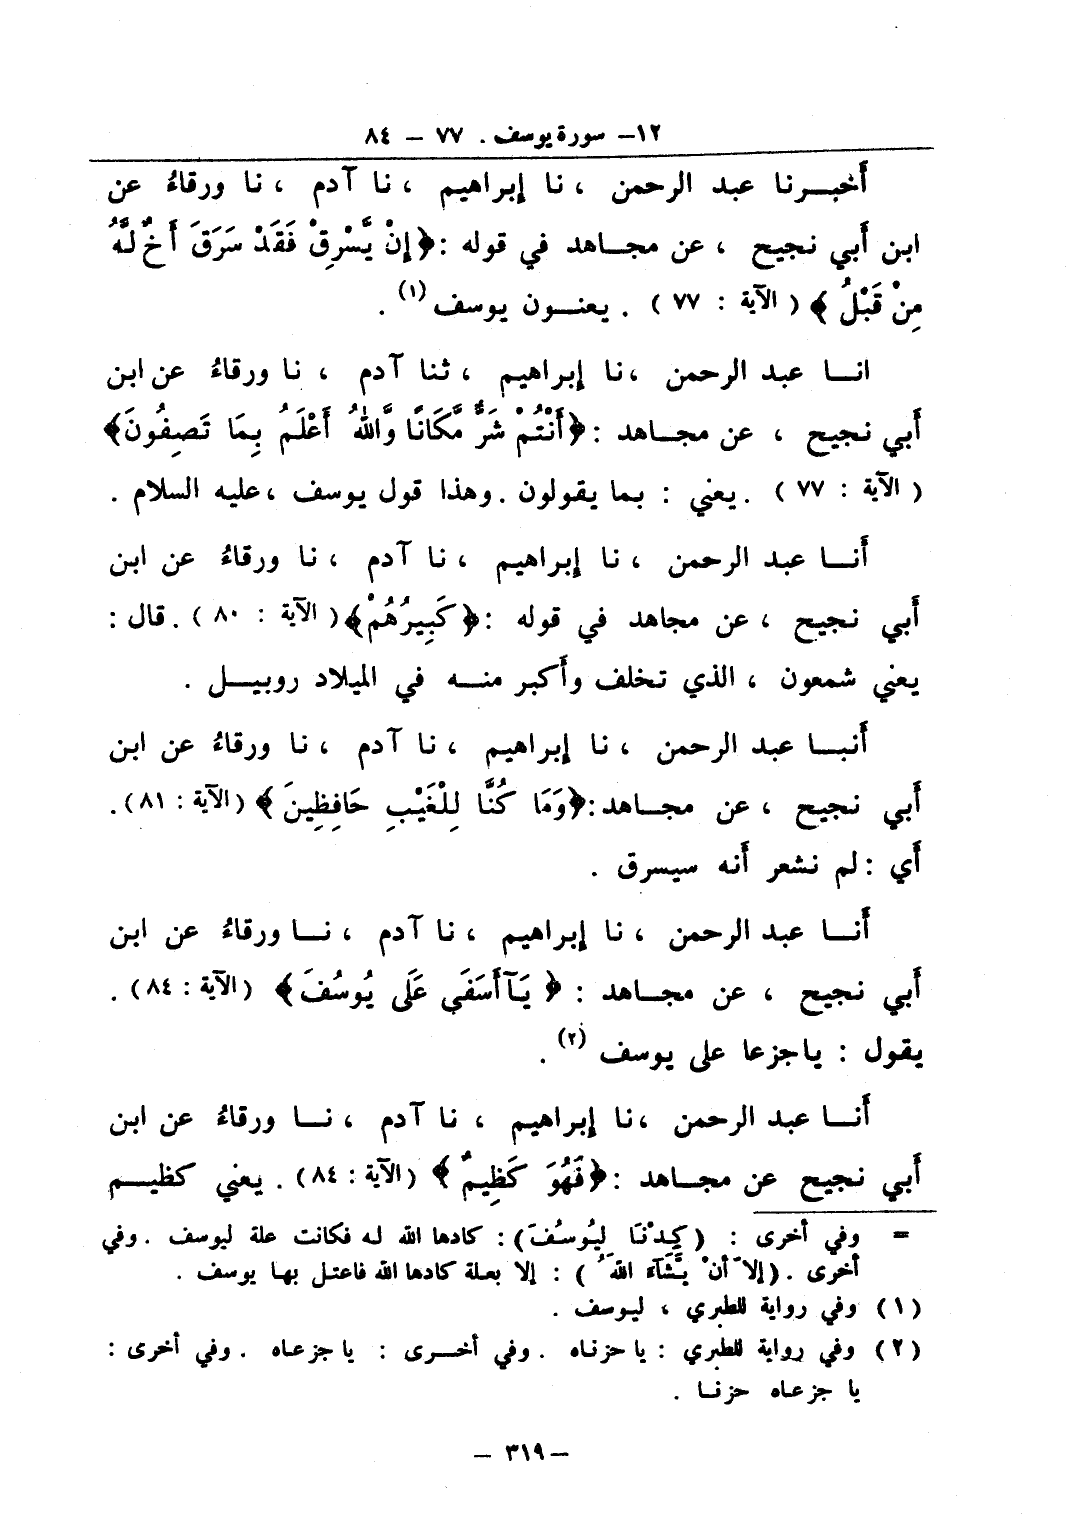 ١٢- سورة يوسف . ٧٧ – ٨٤
أخبرنا عبد الرحمن ، نا إبراهيم ، نا آدم ، نا ورقاءُ عن
ابن أبي نجيح ، عن مجاهد في قوله : ﴿إِنْ يَّسْرِقْ فَقَدْ سَرَقَ أَخٌ لَّهُ
مِنْ قَبْلُ ﴾ ( الآية : ٧٧ ) . يعنون يوسف (١) .
انا عبد الرحمن ،نا إبراهيم ، ثنا آدم ، نا ورقاءُ عن ابن
أبي نجيح ، عن مجاهد : ﴿أَنْتُمْ شَرٌّ مَّكَانًا وَّاللهُ أَعْلَمُ بِمَا تَصِفُونَ﴾
( الآية : ٧٧ ) .يعني : بما يقولون .وهذا قول يوسف ،عليه السلام .
أنا عبد الرحمن ، نا إبراهيم ، نا آدم ، نا ورقاءُ عن ابن
أبي نجيح ، عن مجاهد في قوله : ﴿كَبِيرُهُمْ﴾( الآية : ٨٠ ) .قال :
يعني شمعون ، الذي تخلف وأكبر منه في الميلاد روبيل .
أنبا عبد الرحمن ، نا إبراهيم ، نا آدم ، نا ورقاءُ عن ابن
أبي نجيح ، عن مجاهد:﴿وَمَا كُنَّا لِلْغَيْبِ حَافِظِينَ ﴾ (الآية : ٨١).
أي :لم نشعر أنه سيسرق .
أنا عبد الرحمن ، نا إبراهيم ، نا آدم ، نا ورقاءُ عن ابن
أبي نجيح ، عن مجاهد : ﴿ يَآأَسَفَى عَلَى يُوسُفَ﴾ (الآية : ٨٤) .
يقول : ياجزعا على يوسف (٢) .
أنا عبد الرحمن ،نا إبراهيم ، نا آدم ، نا ورقاءُ عن ابن
أبي نجيح عن مجاهد :﴿فَهُوَ كَظِيمٌ ﴾ (الآية : ٨٤) . يعني كظيم
= وفي أخرى : (كِدْنَا لِيُوسُفَ) : كادها الله له فكانت علة ليوسف .وفي
أخرى .(إلا أنْ يَّشَآءَ اللهُ ) : إلا بعلة كادها الله فاعتل بها يوسف .
(١) وفي رواية للطبري ، ليوسف .
(٢) وفي رواية للطبري : يا حزناه . وفي أخرى : يا جزعاه .وفي أخرى :
يا جزعاه حزنا .
– ٣١٩ –